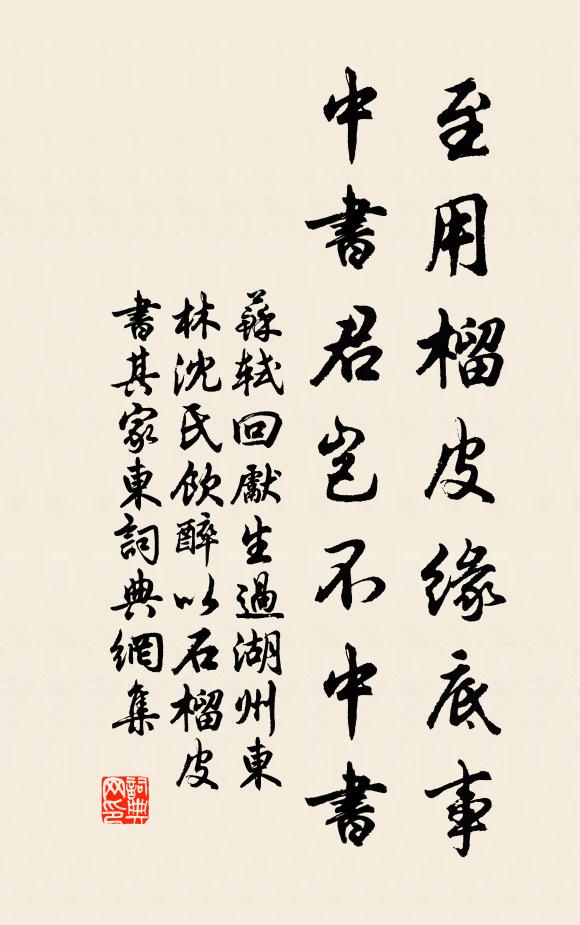 至用榴皮緣底事
中書君豈不中書
蘇軾回獻生過湖州東
林沈氏飲醉以石榴皮
書其家東詞典網集
詞典网印